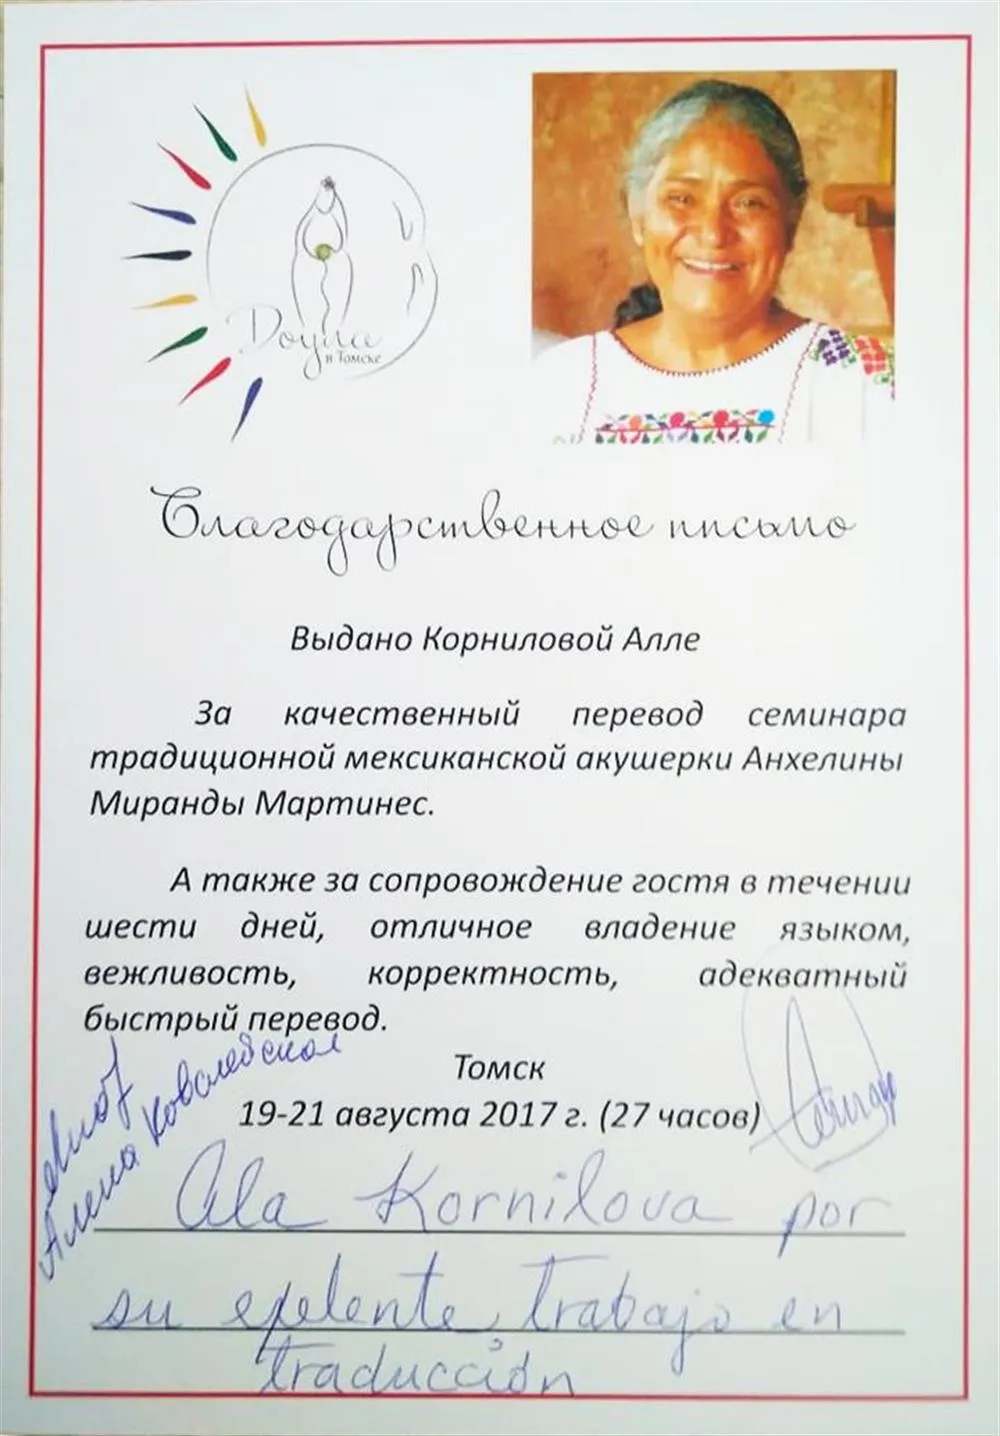 Доула
в Томске
Благодарственное письмо
Выдано Корниловой Алле
За качественный перевод семинара
традиционной мексиканской акушерки Анхелины
Миранды Мартинес.
А также за сопровождение гостя в течении
шести дней, отличное владение языком,
вежливость, корректность, адекватный
быстрый перевод.
Томск
19-21 августа 2017 г. (27 часов)
Алена Ковалевская
Ala Kornilova por
su exelente, trabajo en
traducción